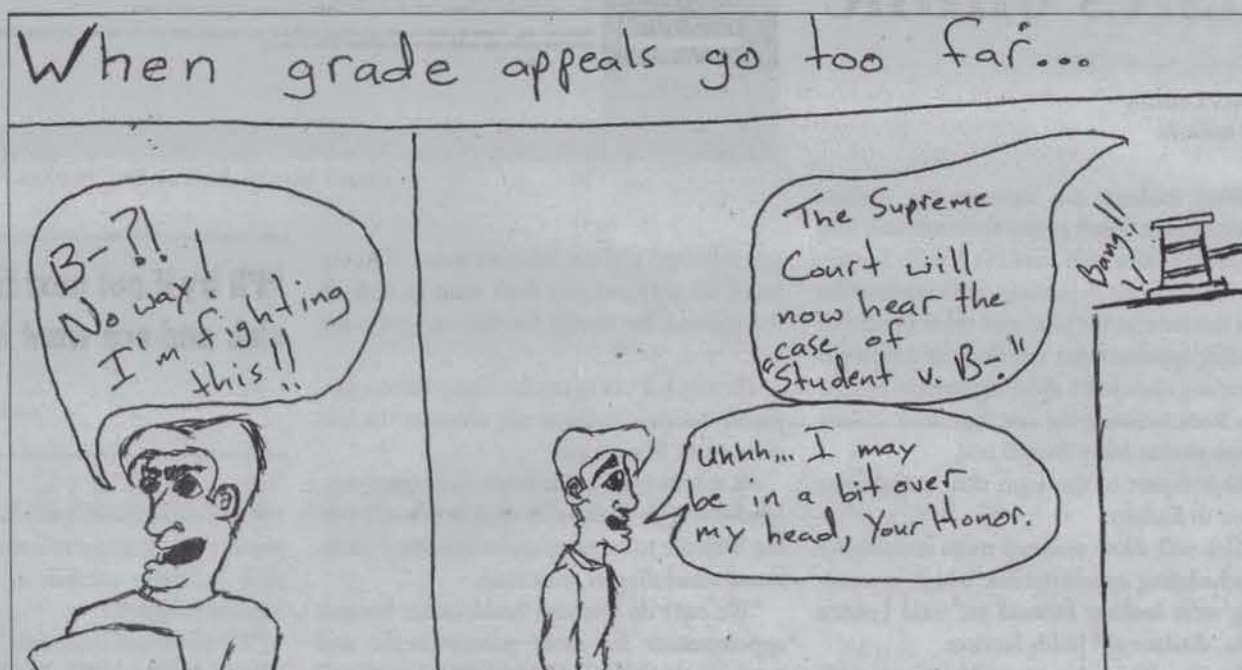 When grade appeals go too far...
B-?!
No way!
I'm fighting
this!!
The Supreme
Court will
now hear the
case of
"Student v. B-."
Bang!!
Uhhh... I may
be in a bit over
my head, Your Honor.